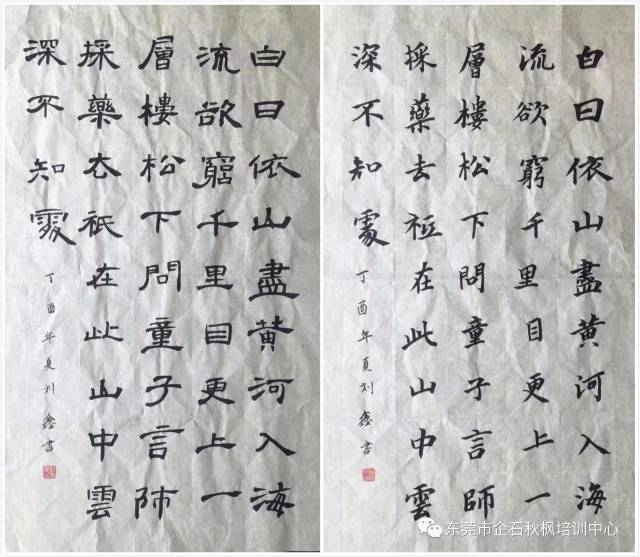 白日依山盡黄河入海
流欲窮千里目更上一
層樓松下問童子言師
採藥去衹在此山中雲
深不知處
丁酉年夏刘鑫書
白日依山盡黄河入海
流欲窮千里目更上一
層樓松下問童子言師
採藥去衹在此山中雲
深不知處
丁酉年夏刘鑫書
东莞市企石秋枫培训中心